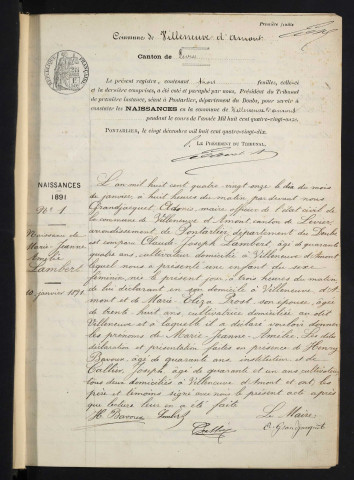 Première feuille
Commune de Villeneuve d'Amont
Canton de Levier
Le présent registre, contenant trois feuilles, celle-ci
et la dernière comprises, a été coté et paraphé par nous, Président du Tribunal
de première instance, séant à Pontarlier, département du Doubs, pour servir à
constater les NAISSANCES en la commune de Villeneuve d'Amont
pendant le cours de l'année Mil huit cent quatre-vingt-onze.
PONTARLIER, le vingt décembre mil huit cent quatre-vingt-dix.
LE PRÉSIDENT DU TRIBUNAL,
NAISSANCES
1891
N° 1
Naissance de
Marie Jeanne
Amélie
Lambert
10 janvier 1891
L'an mil huit cent quatre vingt onze le dix du mois
de janvier, à huit heures du matin par devant nous
Grandjacquet, maire, officier de l'état civil de
la commune de Villeneuve d'Amont, canton de Levier,
arrondissement de Pontarlier, département du Doubs
est comparu Claude Joseph Lambert, âgé de quarante
quatre ans, cultivateur domicilié à Villeneuve d'Amont,
lequel nous a présenté un enfant du sexe
féminin, né le présent jour, à trois heures du matin
de lui déclarant en son domicile à Villeneuve d'A-
mont et de Marie Eliza Prost son épouse, âgée
de trente huit ans, cultivatrice domiciliée au dit
Villeneuve et à laquelle il a déclaré vouloir donner
les prénoms de Marie Jeanne Amélie. Les dites
déclaration et présentation faites en présence de Henry
Bavoux, âgé de quarante ans, instituteur et de
Cattier, Joseph, âgé de quarante et un ans cultivateur
tous deux domiciliés à Villeneuve d'Amont et ont, les
père et témoins signé avec nous le présent acte après
que lecture leur en a été faite
H. Bavoux Lambert Le Maire